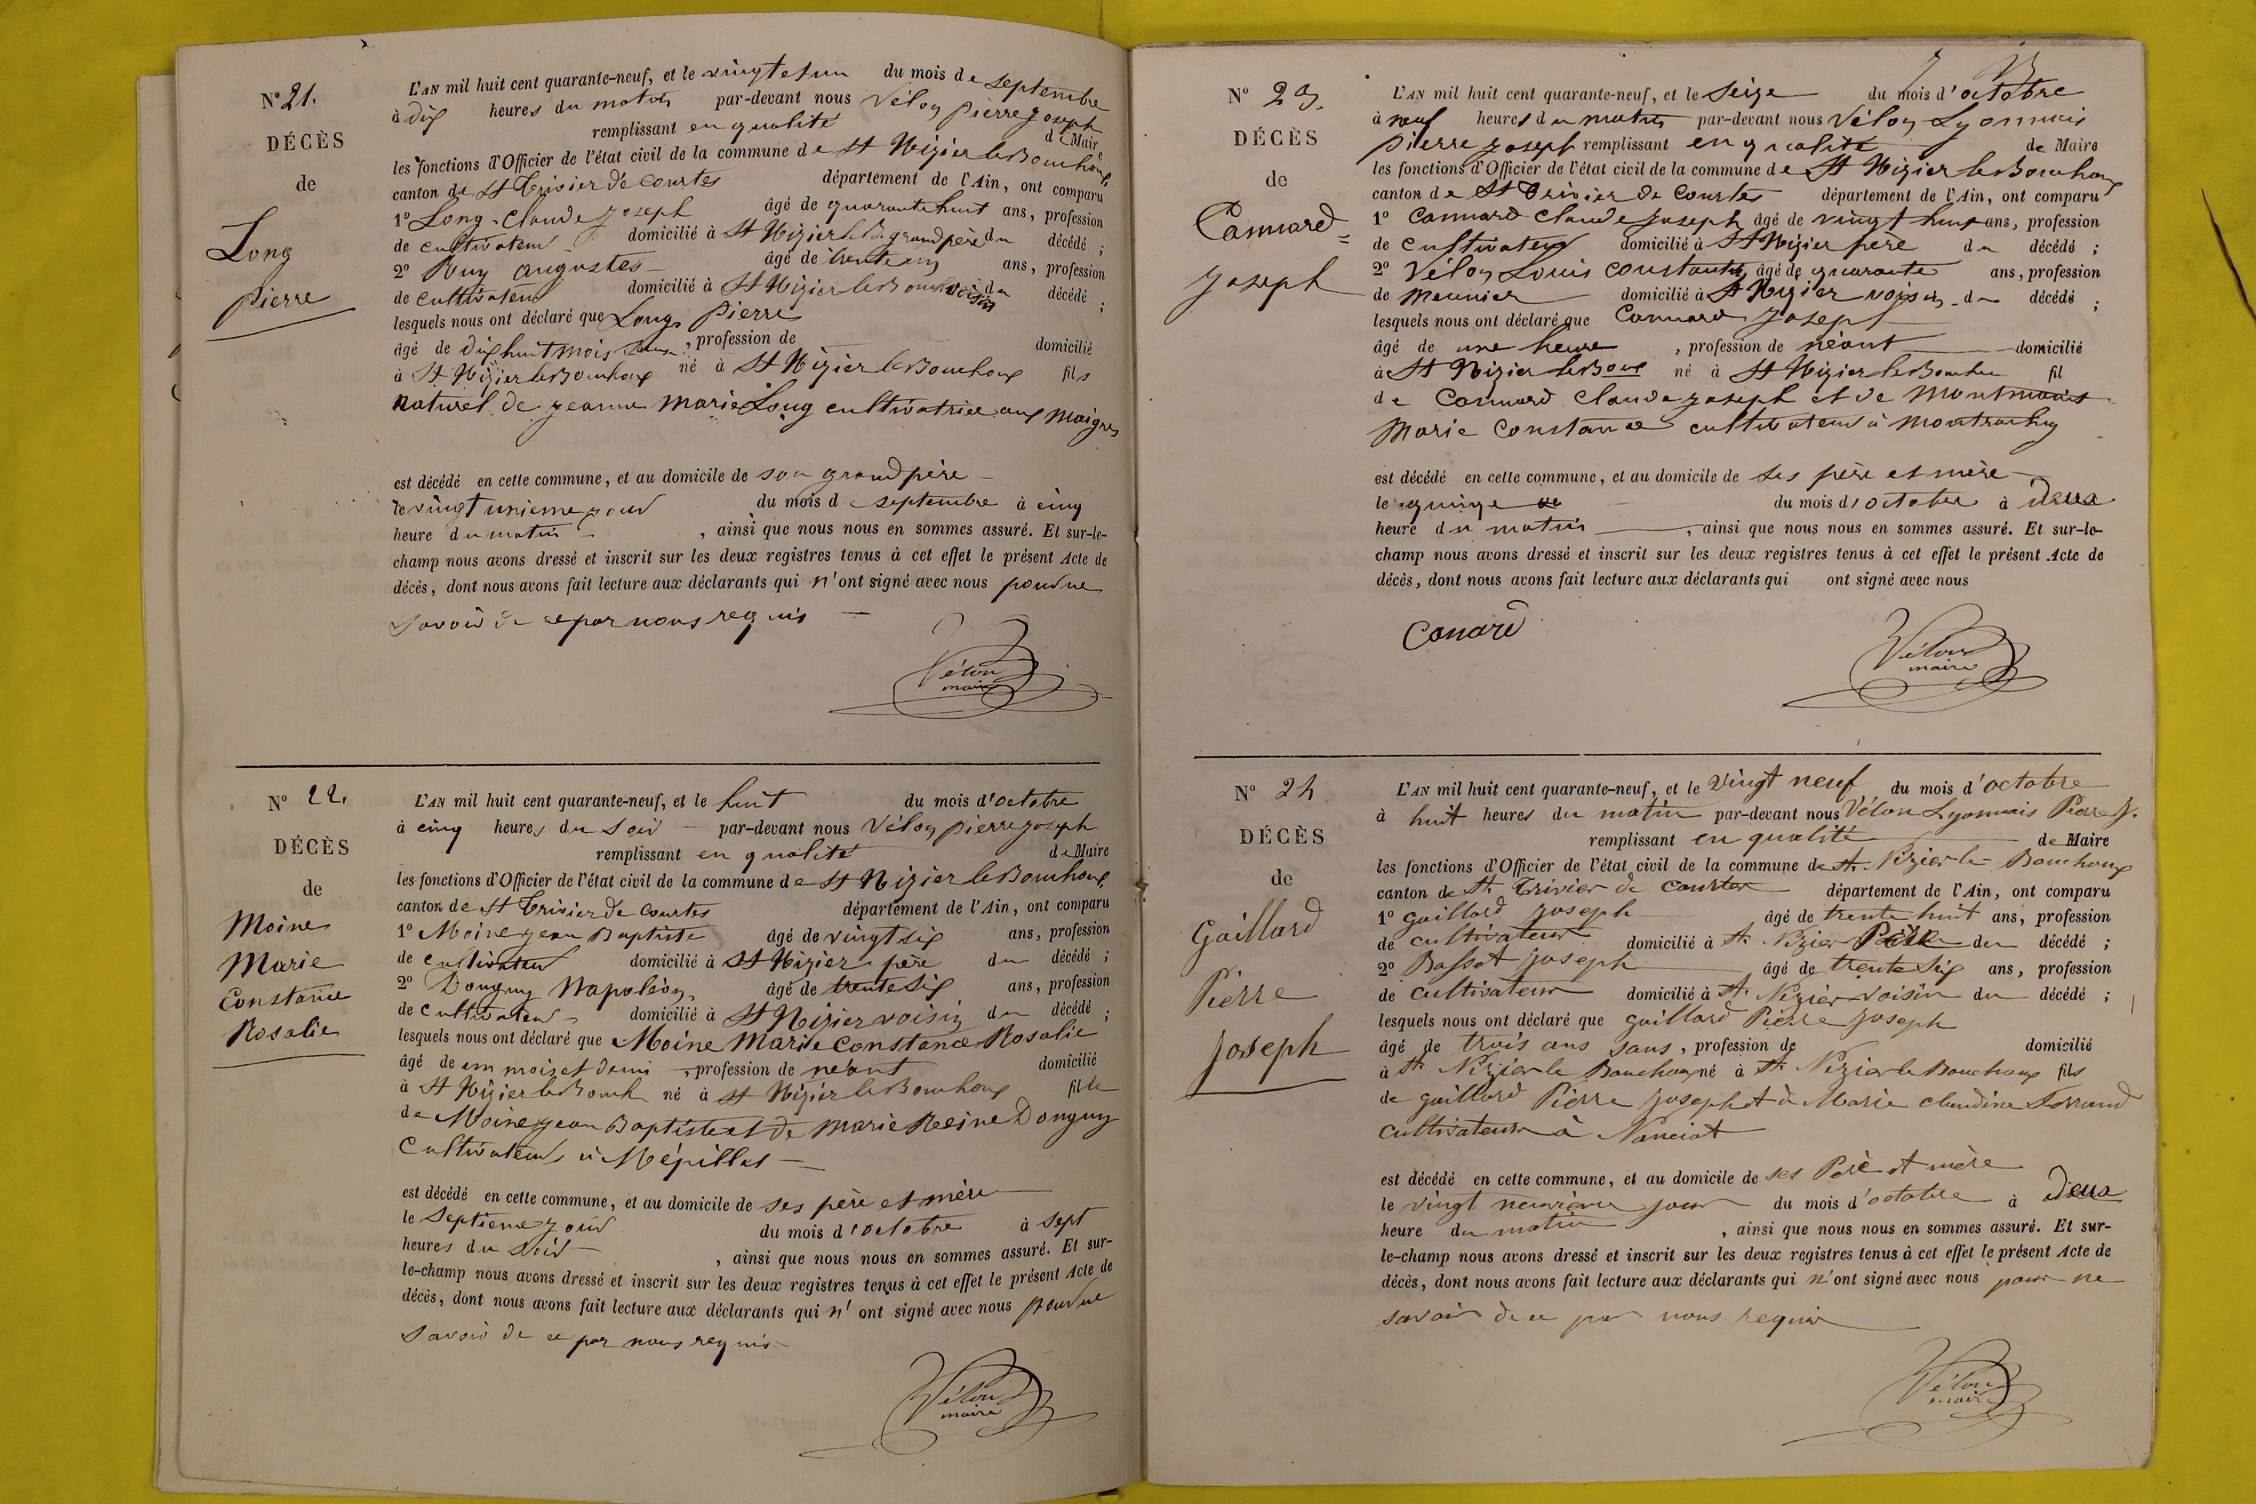 N° 21.
DÉCÈS
de
Long
pierre
L'AN mil huit cent quarante-neuf, et le vingt et un du mois de septembre
à dix heures du matin par-devant nous Vélon pierre joseph
remplissant en qualité de Maire
les fonctions d'Officier de l'état civil de la commune de St Nizier le Bouchoux
canton de St Trivier de Courtes département de l'Ain, ont comparu
1° Long Claude joseph âgé de quarante huit ans, profession
de cultivateur domicilié à St Nizier le B. grand père du décédé ;
2° Puy augustes âgé de trente ans, profession
de cultivateur domicilié à St Nizier le Bouch voisin du décédé ;
lesquels nous ont déclaré que Long Pierre
âgé de dix huit mois , profession de domicilié
à St Nizier le Bouchoux né à St Nizier le Bouchoux fils
naturel de jeanne Marie Long cultivatrice aux Maigres
est décédé en cette commune, et au domicile de son grand père
le vingt unieme jour du mois de septembre à cinq
heure du matin , ainsi que nous nous en sommes assuré. Et sur-le-
champ nous avons dressé et inscrit sur les deux registres tenus à cet effet le présent Acte de
décès, dont nous avons fait lecture aux déclarants qui n'ont signé avec nous pour ne
savoir de ce par nous requis
Vélon
maire
N° 22.
DÉCÈS
de
Moine
Marie
Constance
Rosalie
L'AN mil huit cent quarante-neuf, et le huit du mois d'octobre
à cinq heures du soir par-devant nous Vélon pierre joseph
remplissant en qualité de Maire
les fonctions d'Officier de l'état civil de la commune de St Nizier le Bouhoux
canton de St Trivier de Courtes département de l'Ain, ont comparu
1° Moine jean Baptiste âgé de vingt six ans, profession
de cultivateur domicilié à St Nizier père du décédé ;
2° Donguy Napoléon âgé de trente six ans, profession
de cultivateur domicilié à St Nizier voisin du décédé ;
lesquels nous ont déclaré que Moine Marie Constance Rosalie
âgé de un mois et demi , profession de néant domicilié
à St Nizier le Bouch né à St Nizier le Bouhoux fille
de Moine jean Baptiste et de Marie Reine Donguy
Cultivateurs à Mépillat
est décédé en cette commune, et au domicile de ses père et mère
le septieme jour du mois d'octobre à sept
heures du soir , ainsi que nous nous en sommes assuré. Et sur-
le-champ nous avons dressé et inscrit sur les deux registres tenus à cet effet le présent Acte de
décès, dont nous avons fait lecture aux déclarants qui n'ont signé avec nous pour ne
savoir de ce par nous requis
Vélon
maire
N° 23.
DÉCÈS
de
Cannard
joseph
L'AN mil huit cent quarante-neuf, et le seize du mois d'octobre
à neuf heures du matin par-devant nous Vélon Lyonnais
pierre joseph remplissant en qualité de Maire
les fonctions d'Officier de l'état civil de la commune de St Nizier le Bouchoux
canton de St Trivier de Courtes département de l'Ain, ont comparu
1° Cannard Claude joseph âgé de vingt huit ans, profession
de cultivateur domicilié à St Nizier père du décédé ;
2° Vélon Louis Constantin âgé de quarante ans, profession
de meunier domicilié à St Nizier voisin du décédé ;
lesquels nous ont déclaré que Cannard joseph
âgé de une heure , profession de néant domicilié
à St Nizier le Boux né à St Nizier le Bouchu fil
de Cannard Claude joseph et de Montmain
Marie Constance cultivateurs à Montrachy
est décédé en cette commune, et au domicile de ses père et mère
le quinze du mois d'octobre à deux
heure du matin , ainsi que nous nous en sommes assuré. Et sur-le-
champ nous avons dressé et inscrit sur les deux registres tenus à cet effet le présent Acte de
décès, dont nous avons fait lecture aux déclarants qui ont signé avec nous
Canard
Vélon
maire
N° 24
DÉCÈS
de
Gaillard
Pierre
Joseph
L'AN mil huit cent quarante-neuf, et le vingt neuf du mois d'octobre
à huit heures du matin par-devant nous Vélon Lyonnais Pierre J.
remplissant en qualité de Maire
les fonctions d'Officier de l'état civil de la commune de St. Nizier le Bouchoux
canton de St. Trivier de Courtes département de l'Ain, ont comparu
1° gaillard joseph âgé de trente huit ans, profession
de cultivateur domicilié à St. Nizier Père du décédé ;
2° Bassot joseph âgé de trente six ans, profession
de cultivateur domicilié à St. Nizier voisin du décédé ;
lesquels nous ont déclaré que gaillard Pierre Joseph
âgé de trois ans sans , profession de domicilié
à St. Nizier le Bouchoux né à St. Nizier le Bouchoux fils
de gaillard Pierre joseph et de Marie claudine Ferrand
cultivateurs à Nanciat
est décédé en cette commune, et au domicile de ses Père et mère
le vingt neuvieme jour du mois d'octobre à deux
heure du matin , ainsi que nous nous en sommes assuré. Et sur-
le-champ nous avons dressé et inscrit sur les deux registres tenus à cet effet le présent Acte de
décès, dont nous avons fait lecture aux déclarants qui n'ont signé avec nous pour ne
savoir de ce par nous requis
Vélon
maire